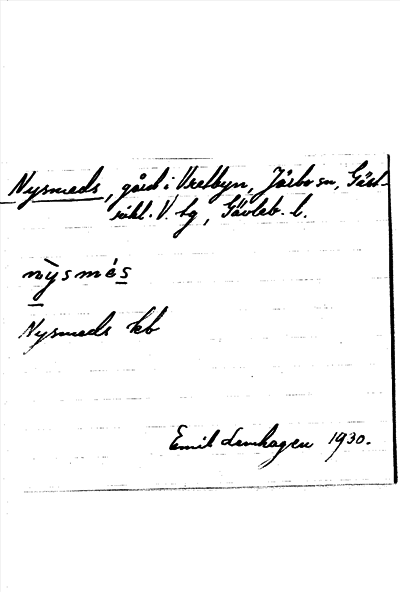 Nysmeds, gård i Vretbyn, Järbo sn, Gäst-
rikl. V. tg, Gävleb. l.
nỳsmés
Nysmeds kb
Emil Lamhagen 1930.